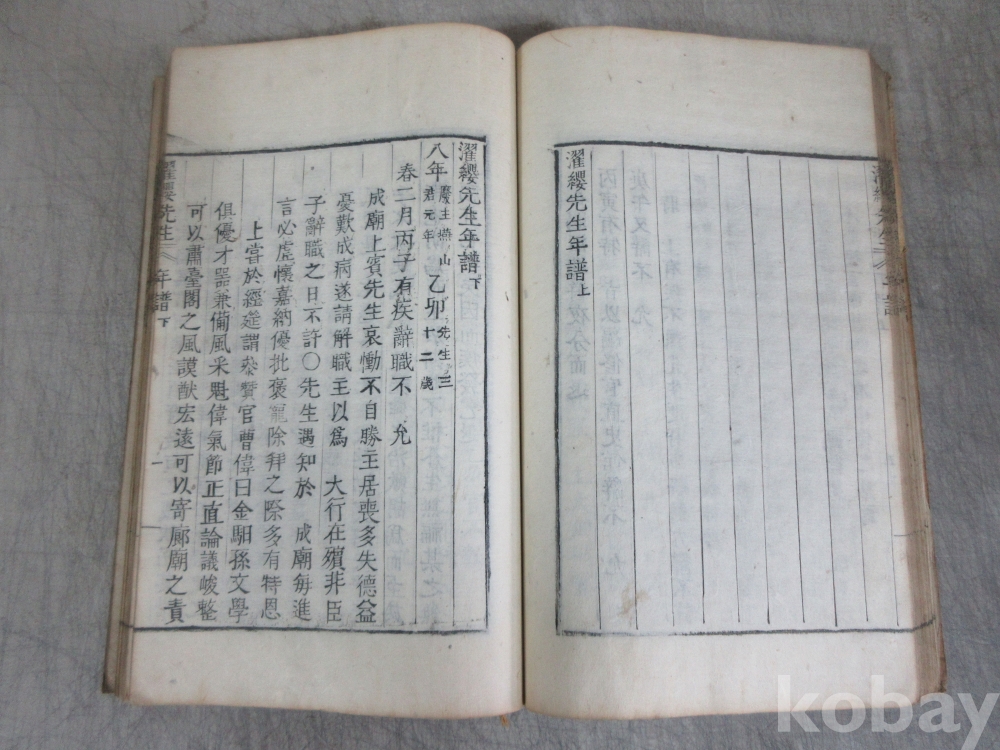 濯纓先生年譜上
濯纓先生年譜下
八年廢主燕山君元年乙卯先生三十二歲
春二月丙子有疾辭職不 允
成廟上賓先生哀慟不自勝主居喪多失德益
憂歎成病遂請解職主以爲 大行在殯非臣
子辭職之日不許○先生遇知於 成廟每進
言必虛懷嘉納優批褒寵除拜之際多有特恩
上嘗於經筵謂叅贊官曹偉曰金馹孫文學
俱優才器兼備風采魁偉氣節正直論議峻整
可以肅臺閣之風謨猷宏遠可以寄廊廟之責
濯纓先生 年譜下 一
kobay